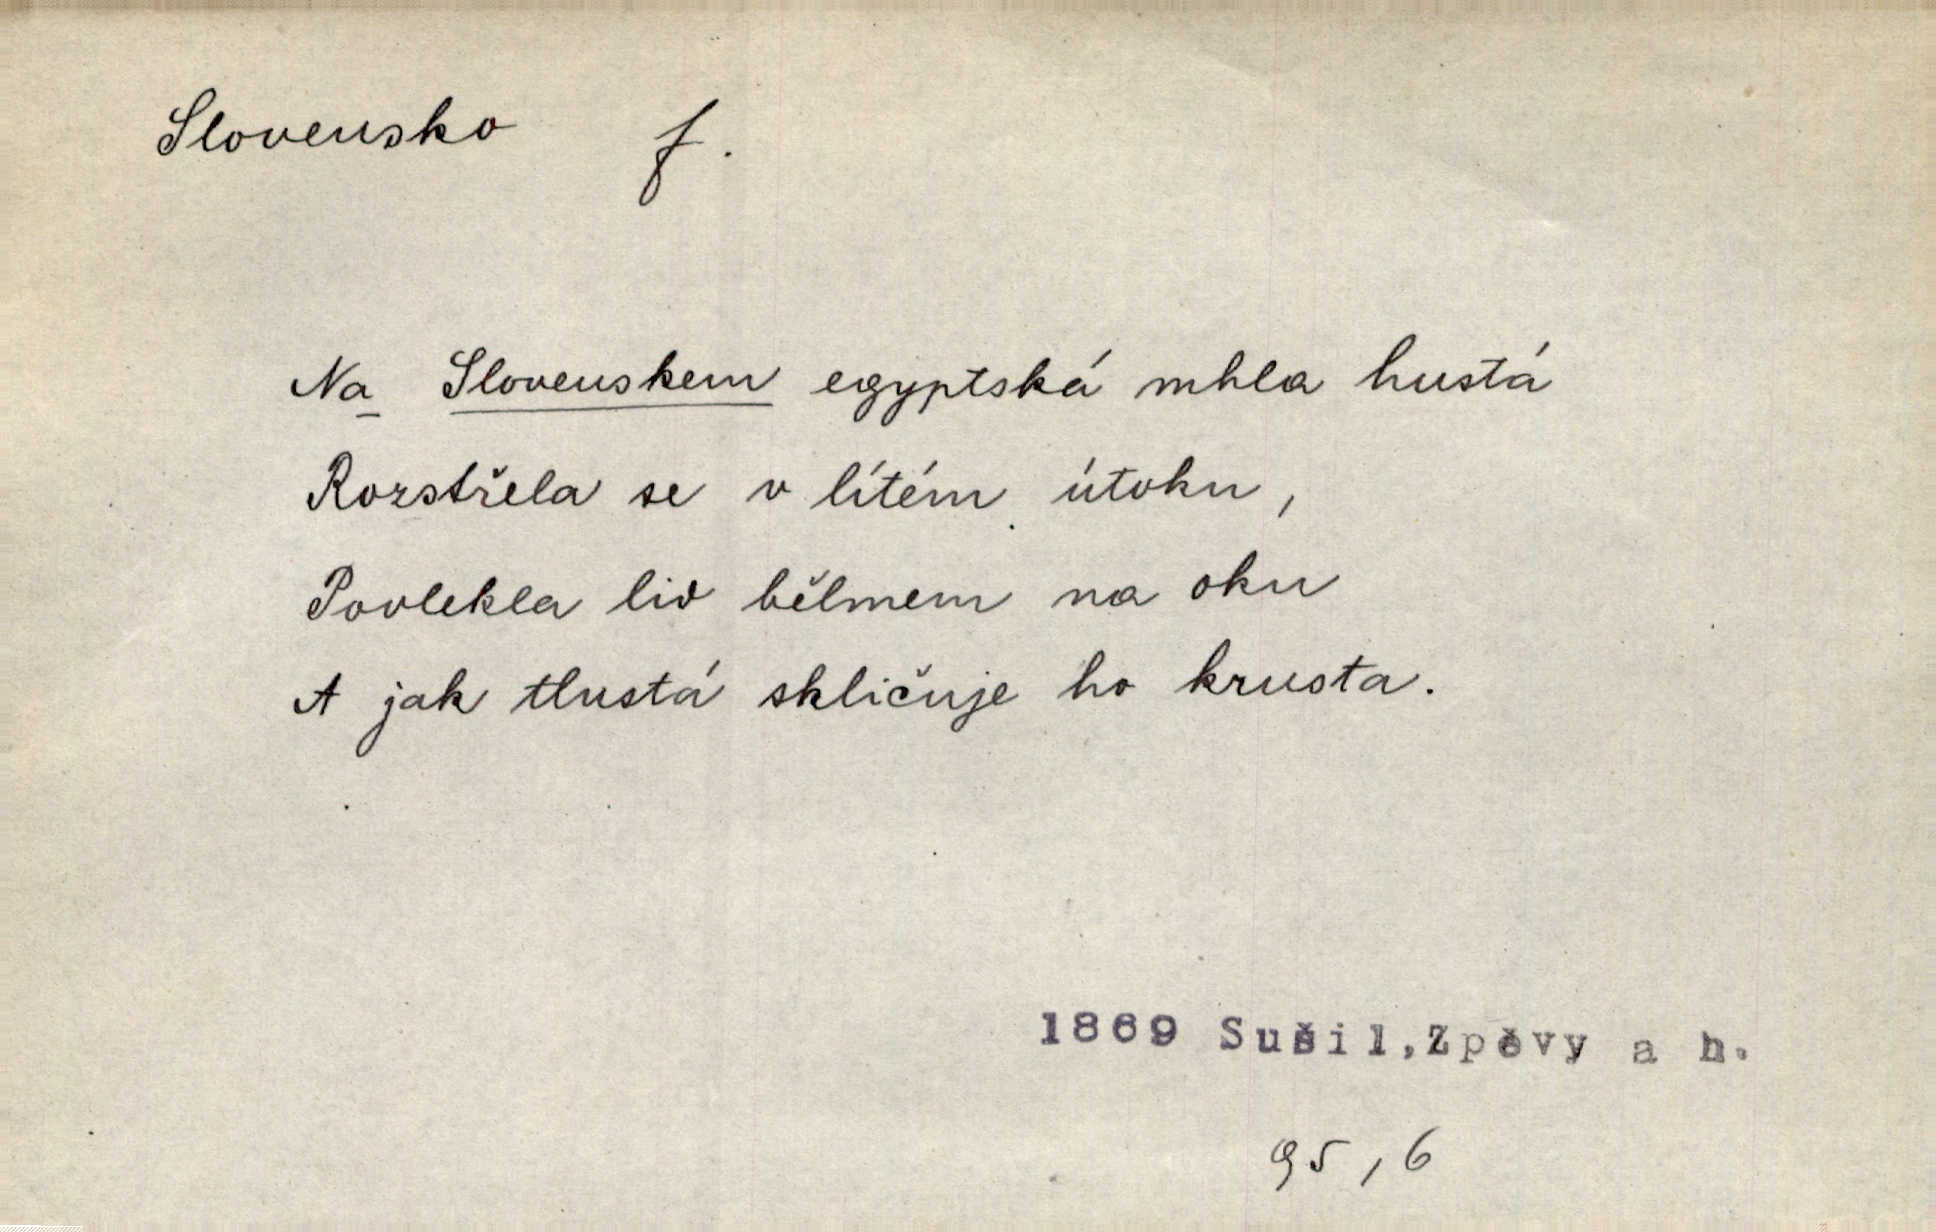 Slovensko f.
Na Slovenskem egyptská mhla hustá
Rozstřela se v lítém útoku,
Povlekla lid bělmem na oku
A jak tlustá skličuje ho krusta.
1869 Sušil,Zpěvy a h.
95,6